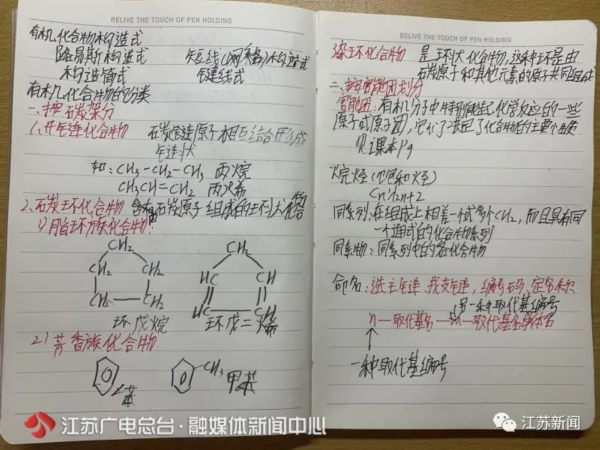 RELIVE THE TOUCH OF PEN HOLDING
有机化合物构造式
路易斯构造式 短线(网格)构造式
构造简式 键线式
有机化合物的分类
一、按碳架分
1、开链化合物 碳链原子相互结合形成
链状
如:CH3-CH2-CH3 丙烷
CH3CH=CH2 丙烯
2、碳环化合物 含有碳原子组成的环状化合物
1)脂环族化合物:
CH2
CH2 CH2
CH2 CH2
环戊烷
CH2
HC CH
HC CH
环戊二烯
2)芳香族化合物
苯
CH3 甲苯
RELIVE THE TOUCH OF PEN HOLDING
杂环化合物 是环状化合物,这种环是由
碳原子和其他元素的原子共同组成
二、按官能团划分
官能团:有机分子中特别能起化学反应的一些
原子或原子团,它们决定了化合物的主要性质
见课本P9
烷烃(饱和烃)
CnH2n+2
同系列:在组成上相差一个或多个CH2,而且具有同
一个通式的化合物系列
同系物:同系列中的各化合物
命名:选主链,找支链,编号码,定名称
另一种取代基编号
n—取代基名—m—取代基名
一种取代基编号
江苏广电总台·融媒体新闻中心
江苏新闻